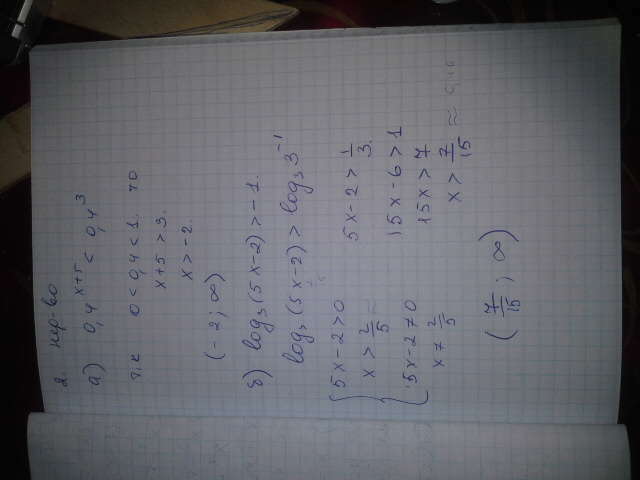 2. нер-во
а) 0,4^{x+5} < 0,4^3
т.к 0 < 0,4 < 1. то
x+5 > 3.
x > -2.
(-2; ∞)
б) log_3(5x-2) > -1.
log_3(5x-2) > log_3 3^{-1}
5x-2 > 0
x > 2/5
5x-2 ≠ 0
x ≠ 2/5
5x-2 > 1/3.
15x-6 > 1
15x > 7
x > 7/15 ≈
(7/15; ∞)